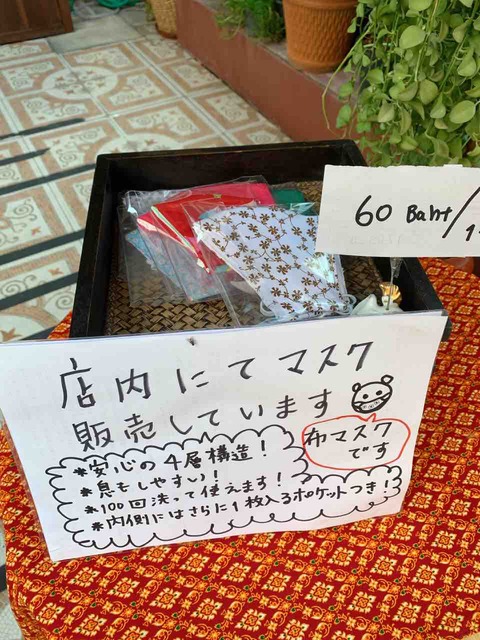 60 Baht/1
店内にてマスク
販売しています
布マスク
です
*安心の4層構造!
*息もしやすい!
*100回洗って使えます!
*内側にはさらに1枚入るポケットつき!